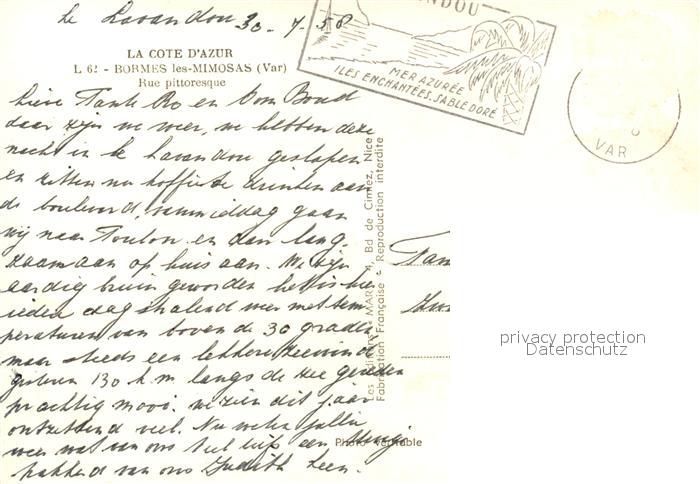 Le Lavandou 30-7-58
LA COTE D'AZUR
L 62 - BORMES les-MIMOSAS (Var)
Rue pittoresque
NDOU
MER AZURÉE
ILES ENCHANTÉES. SABLE DORÉ
VAR
Lieve Tante Ro en Oom Boud
daar zijn we weer, we hebben deze
nacht in Le Lavandou geslapen
en zitten nu koffie te drinken aan
de boulevard, vanmiddag gaan
wij naar Toulon en dan lang-
zaam aan op huis aan. We zijn
aardig bruin geworden het is hier
iedere dag stralend weer met tem
peraturen van boven de 30 graden
maar steeds een lekkere zeewind
gisteren 130 k.m. langs de zee gereden
prachtig mooi. we zien dit jaar
ontzettend veel. Nu weten jullie
weer wat van ons veel liefs een
pakkend van ons Judith Leen.
Bd de Cimiez, Nice
Fabrication Française - Reproduction interdite
Photo véritable
privacy protection
Datenschutz